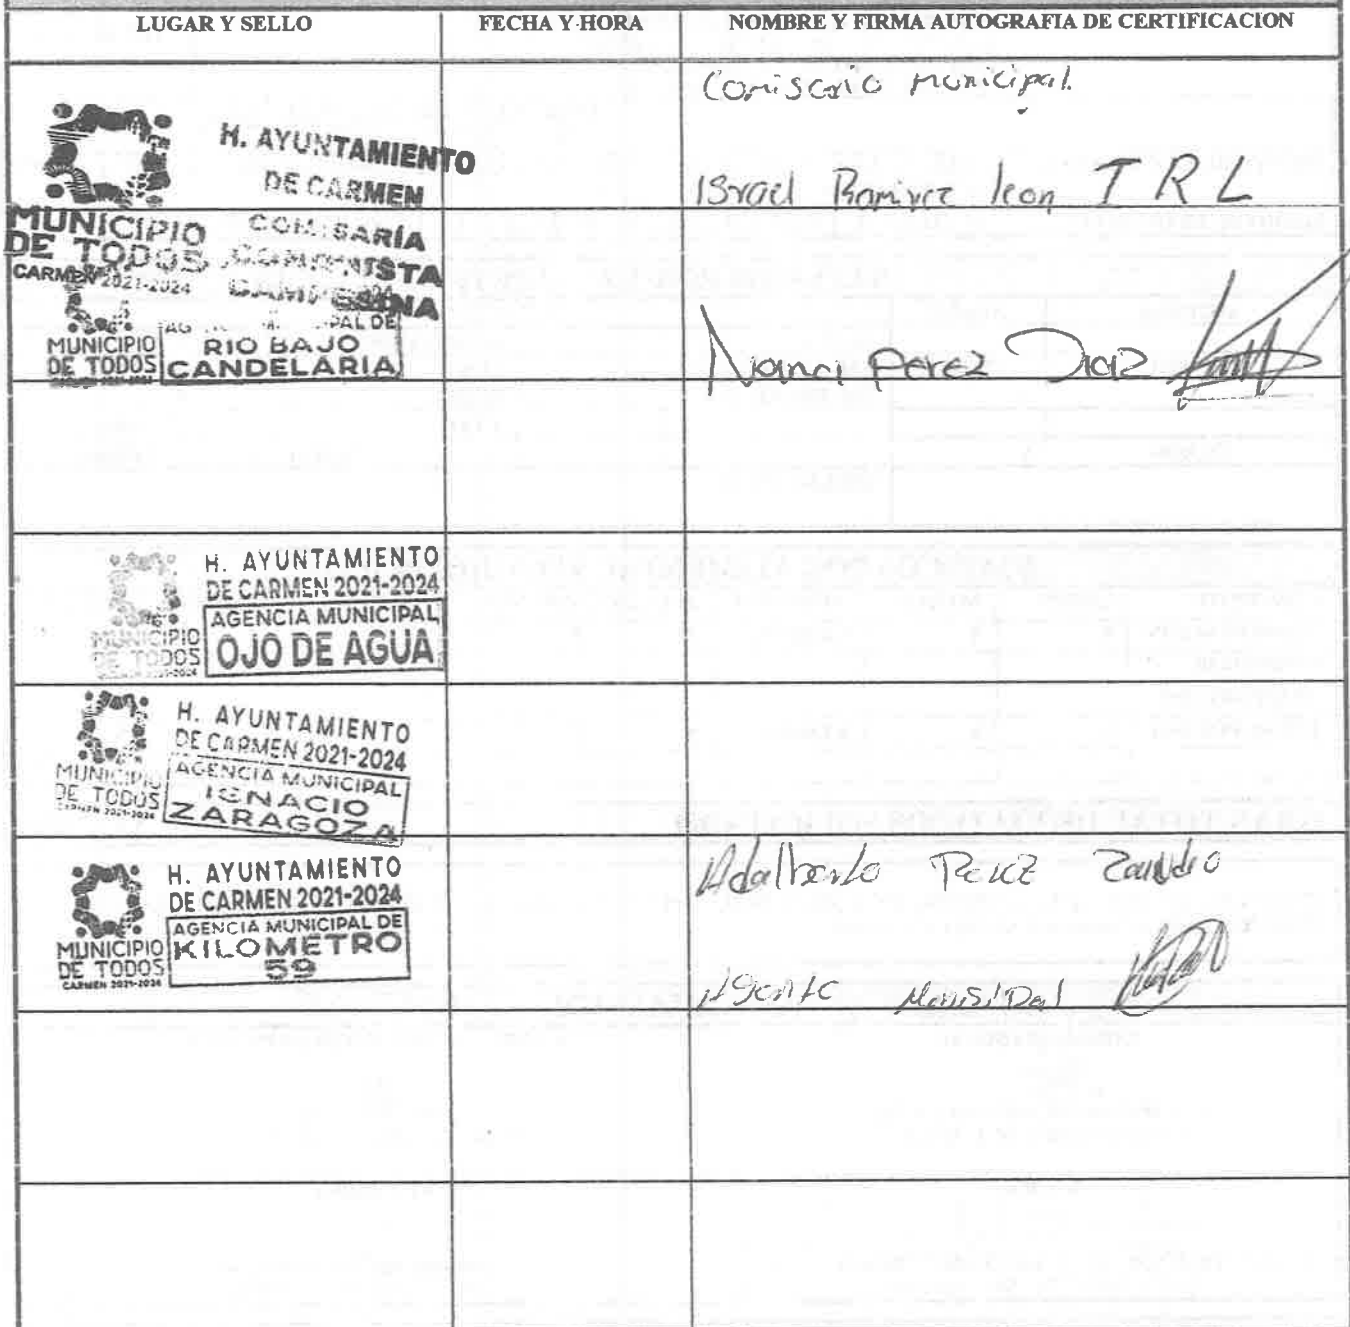 LUGAR Y SELLO
FECHA Y HORA
NOMBRE Y FIRMA AUTOGRAFIA DE CERTIFICACION
Comisario Municipal.
H. AYUNTAMIENTO
DE CARMEN
COMISARÍA
COMUNISTA
CAMPESINA
MUNICIPIO
DE TODOS
CARMEN 2021-2024
Israel Ramirez leon I R L
MUNICIPIO
DE TODOS
RIO BAJO
CANDELARIA
Nanci Perez Diaz
H. AYUNTAMIENTO
DE CARMEN 2021-2024
AGENCIA MUNICIPAL
OJO DE AGUA
MUNICIPIO
DE TODOS
H. AYUNTAMIENTO
DE CARMEN 2021-2024
AGENCIA MUNICIPAL
IGNACIO
ZARAGOZA
MUNICIPIO
DE TODOS
CARMEN 2021-2024
H. AYUNTAMIENTO
DE CARMEN 2021-2024
AGENCIA MUNICIPAL DE
KILOMETRO
59
MUNICIPIO
DE TODOS
CARMEN 2021-2024
Adalberto Perez
Agente Monsipal